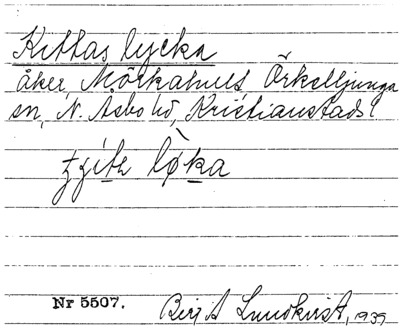 Kittas lycka
åker, Mörkahult, Örkelljunga
sn, N. Åsbo hd, Kristianstads l
løka
Nr 5507.
Lundkvist, 1939